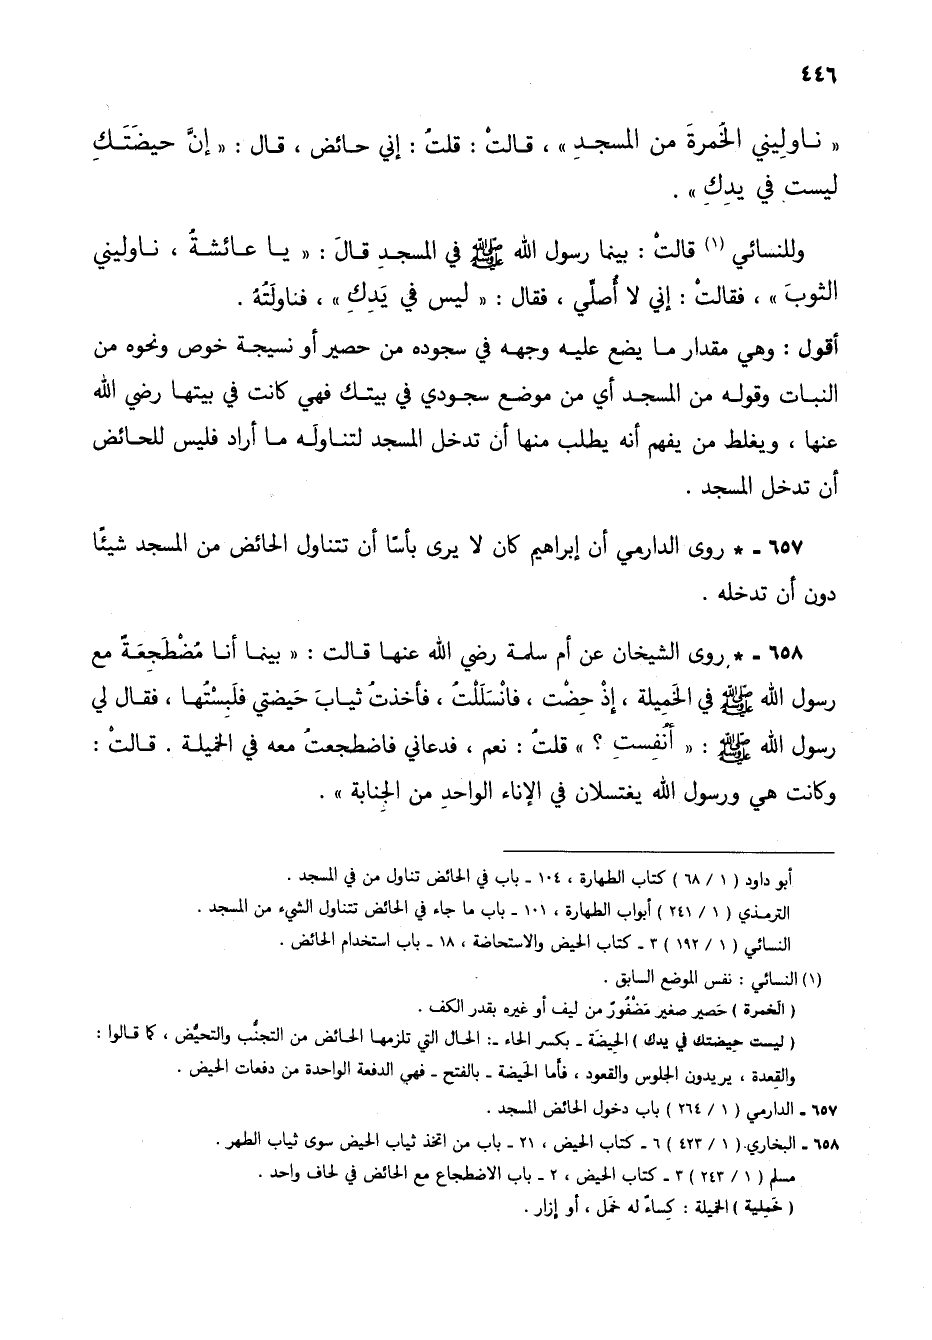 ٤٤٦
« نـاولِيني الخُمرةَ من المسجـدِ » ، قـالتْ : قلتُ : إني حـائض ، قـال : « إنَّ حيضَتَـكِ
ليست في يدكِ » .
وللنسائي (١) قالتْ : بينما رسول الله ﷺ في المسجدِ قـالَ : « يـا عـائشـةُ ، نـاوليني
الثوبَ » ، فقالتْ : إني لا أُصلّي ، فقال : « ليس في يَدِكِ » ، فناولَتْهُ .
أقول : وهي مقدار مـا يضع عليـه وجهـه في سجوده من حصير أو نسيجـة خوص ونحوه من
النبـات وقولـه من المسجـد أي من موضـع سجـودي في بيتـك فهي كانت في بيتهـا رضي الله
عنهـا ، ويغلـط من يفهم أنه يطلب منهـا أن تدخل المسجد لتنـاولَـه مـا أراد فليس للحـائض
أن تدخل المسجد .
٦٥٧ ـ * روى الدارمي أن إبراهيم كان لا يرى بأسًا أن تتناول الحائض من المسجد شيئًا
دون أن تدخله .
٦٥٨ ـ * روى الشيخان عن أم سلمة رضي الله عنهـا قـالت : « بينمـا أنـا مُضْطَجِعَـةٌ مع
رسول الله ﷺ في الخَمِيلة ، إذْ حِضْت ، فانْسَلَلْتُ ، فأخذتُ ثيـابَ حَيضتي فلَبِسْتُهـا ، فقـال لي
رسول الله ﷺ : « أَنُفِست ؟ » قلتُ : نعم ، فدعاني فاضطجعتُ معه في الخميلـة . قـالتْ :
وكانت هي ورسول الله يغتسلان في الإناء الواحدِ من الجَنابة » .
أبو داود ( ١ / ٦٨ ) كتاب الطهارة ، ١٠٤ ـ باب في الحائض تناول من في المسجد .
الترمذي ( ١ / ٢٤١ ) أبواب الطهارة ، ١٠١ ـ باب ما جاء في الحائض تتناول الشيء من المسجد .
النسائي ( ١ / ١٩٢ ) ٣ ـ كتاب الحيض والاستحاضة ، ١٨ ـ باب استخدام الحائض .
(١) النسائي : نفس الموضع السابق .
( الخمرة ) حَصير صغير مَضْفُورٌ من ليف أو غيره بقدر الكف .
( ليست حيضتك في يدك ) الحِيضَة ـ بكسر الحاء ـ: الحـال التي تلزمهـا الحـائض من التجنُّب والتحيُّض ، كا قـالوا :
والقِعدة ، يريدون الجلوس والقعود ، فأما الحَيضة ـ بالفتح ـ فهي الدفعة الواحدة من دفعات الحيض .
٦٥٧ ـ الدارمي ( ١ / ٢٦٤ ) باب دخول الحائض المسجد .
٦٥٨ ـ البخاري ( ١ / ٤٢٣ ) ٦ ـ كتاب الحيض ، ٢١ ـ باب من اتخذ ثياب الحيض سوى ثياب الطهر .
مسلم ( ١ / ٢٤٣ ) ٣ ـ كتاب الحيض ، ٢ ـ باب الاضطجاع مع الحائض في لحاف واحد .
( خميلة ) الخميلة : كِساءٌ له خَمل ، أو إزار .